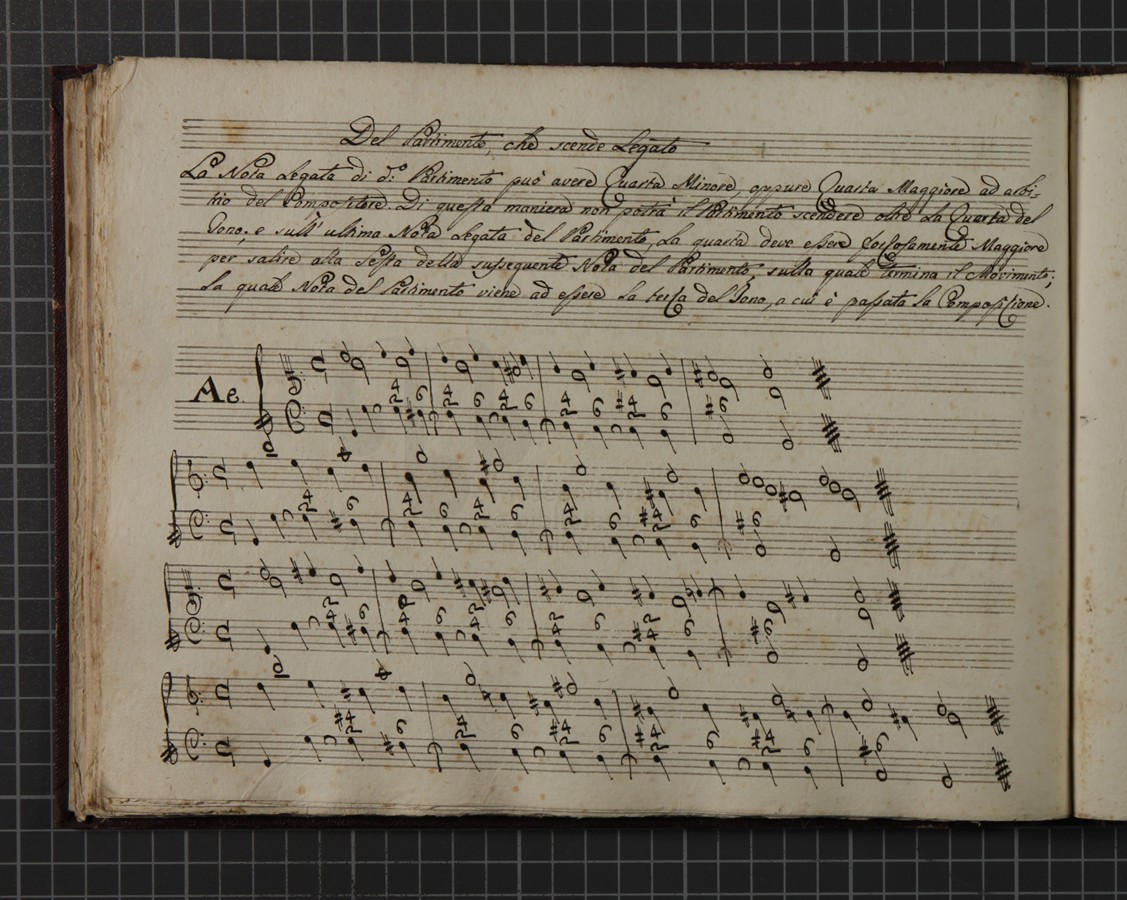 Del Partimento, che scende Legato
La Nota Legata di d.º Partimento può avere Quarta Minore, oppure Quarta Maggiore ad arbi-
trio del Compositore. Di questa maniera non potrà il Partimento scendere oltre la Quarta del
Tono; e sull' ultima Nota Legata del Partimento, la quarta deve essere Maggiore
per salire alla Sesta della susseguente Nota del Partimento, sulla quale termina il Movimento;
la quale Nota del Partimento viene ad essere la terza del Tono, a cui è passata la Composizione.